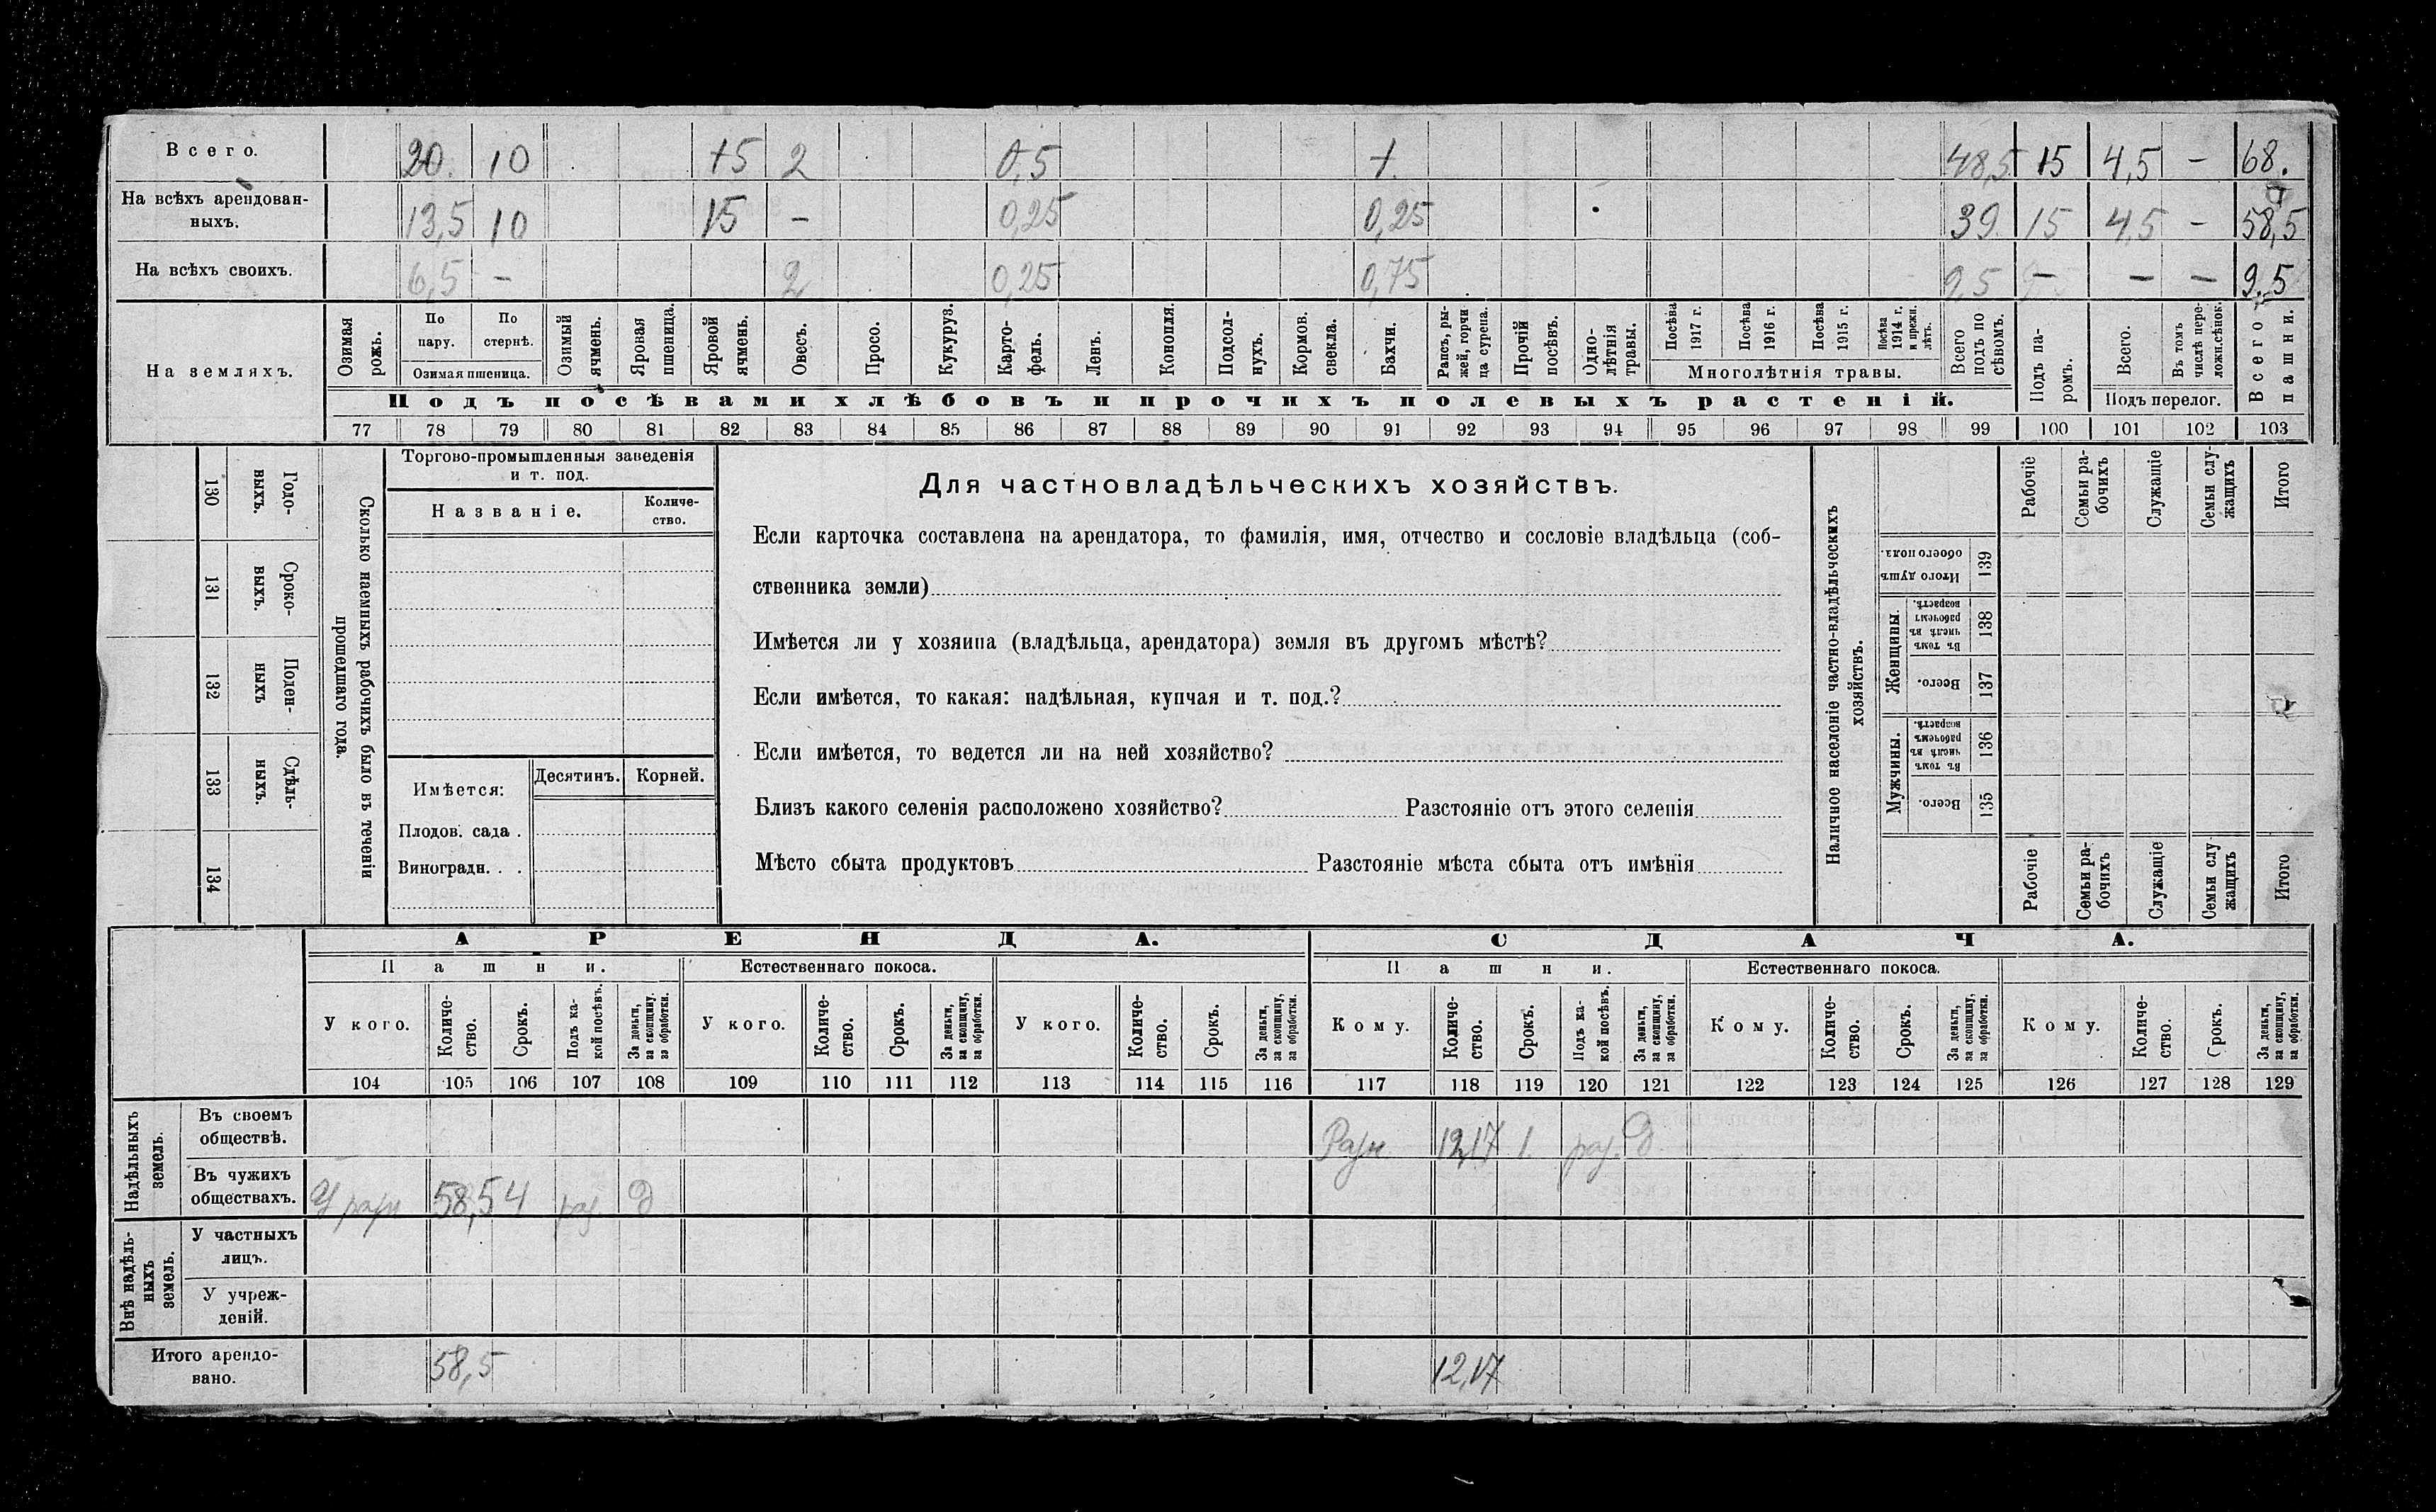 Всего. 20. 10 15 2 0,5 1. 48,5 15 4,5 – 68.
На всѣхъ арендован-
ныхъ. 13,5 10 15 – 0,25 0,25 39 15 4,5 – 58,5
На всѣхъ своихъ. 6,5 – 2 0,25 0,75 9,5 – – – 9,5
На земляхъ.
Озимая рожь.
По пару.
По стернѣ.
Озимая пшеница.
Озимый ячмень.
Яровая пшеница.
Яровой ячмень.
Овесъ.
Просо.
Кукуруз.
Карто-
фель.
Ленъ.
Конопля.
Подсол-
нухъ.
Кормов. свекла.
Бахчи.
Рапсъ, ры-
жей, горчи
ца сурепа.
Прочій посѣвъ.
Одно-
лѣтнія
травы.
Посѣва 1917 г.
Посѣва 1916 г.
Посѣва 1915 г.
Посѣва 1914 г. и прежн. лѣтъ.
Многолѣтнія травы.
Всего подъ по
сѣвомъ.
Подъ па-
ромъ.
Всего.
Въ томъ числѣ пере-
ложн.сѣнок.
Подъ перелог.
Всего пашни.
Подъ посѣвами хлѣбовъ и прочихъ полевыхъ растеній.
77 78 79 80 81 82 83 84 85 86 87 88 89 90 91 92 93 94 95 96 97 98 99 100 101 102 103
130 Годо-
ныхъ.
131 Сроко-
выхъ.
132 Поден-
ныхъ
133 Сдѣль-
ныхъ.
134
Сколько наемныхъ рабочихъ было въ теченіи
прошедшаго года.
Торгово-промышленныя заведенія
и т. под.
Названіе.
Количе-
ство.
Имѣется:
Десятинъ. Корней.
Плодов. сада .
Виноградн. . .
Для частновладѣльческихъ хозяйствъ.
Если карточка составлена на арендатора, то фамилія, имя, отчество и сословіе владѣльца (соб-
ственника земли)
Имѣется ли у хозяина (владѣльца, арендатора) земля въ другомъ мѣстѣ?
Если имѣется, то какая: надѣльная, купчая и т. под.?
Если имѣется, то ведется ли на ней хозяйство?
Близъ какого селенія расположено хозяйство? Разстояніе отъ этого селенія
Мѣсто сбыта продуктовъ Разстояніе мѣста сбыта отъ имѣнія
Наличное населеніе частно-владѣльческихъ
хозяйствъ.
Рабочіе
Семьи ра-
бочихъ
Служащіе
Семьи слу-
жащихъ
Итого
Итого душъ обоего пола. 139
Женщины.
Въ томъ числѣ въ рабочемъ возрастѣ. 138
Всего. 137
Мужчины.
Въ томъ числѣ въ рабочемъ возрастѣ. 136
Всего. 135
Рабочіе
Семьи ра-
бочихъ
Служащіе
Семьи слу
жащихъ
Итого
АРЕНДА. СДАЧА.
Пашни. Естественнаго покоса. Пашни. Естественнаго покоса.
У кого.
Количе-
ство.
Срокъ.
Подъ ка-
кой посѣвъ.
За деньги, за скопщину. за обработки.
У кого.
Количе-
ство.
Срокъ.
За деньги, за скопщину, за обработки.
У кого.
Количе-
ство.
Срокъ.
За деньги, за скопщину, за обработки.
Кому.
Количе-
ство.
Срокъ.
Подъ ка-
кой посѣвъ.
За деньги, за скопщину, за обработки.
Кому.
Количе-
ство.
Срокъ.
За деньги, за скопщину, за обработки.
Кому.
Количе-
ство.
Срокъ.
За деньги, за скопщину, за обработки.
104 105 106 107 108 109 110 111 112 113 114 115 116 117 118 119 120 121 122 123 124 125 126 127 128 129
Надѣльныхъ
земель.
Въ своемъ
обществѣ. 12,17 1.
Въ чужихъ
обществахъ. 58,5 4
Внѣ надѣль-
ныхъ
земель.
У частныхъ
лицъ.
У учреж-
деній.
Итого арендо-
вано. 58,5 12,17